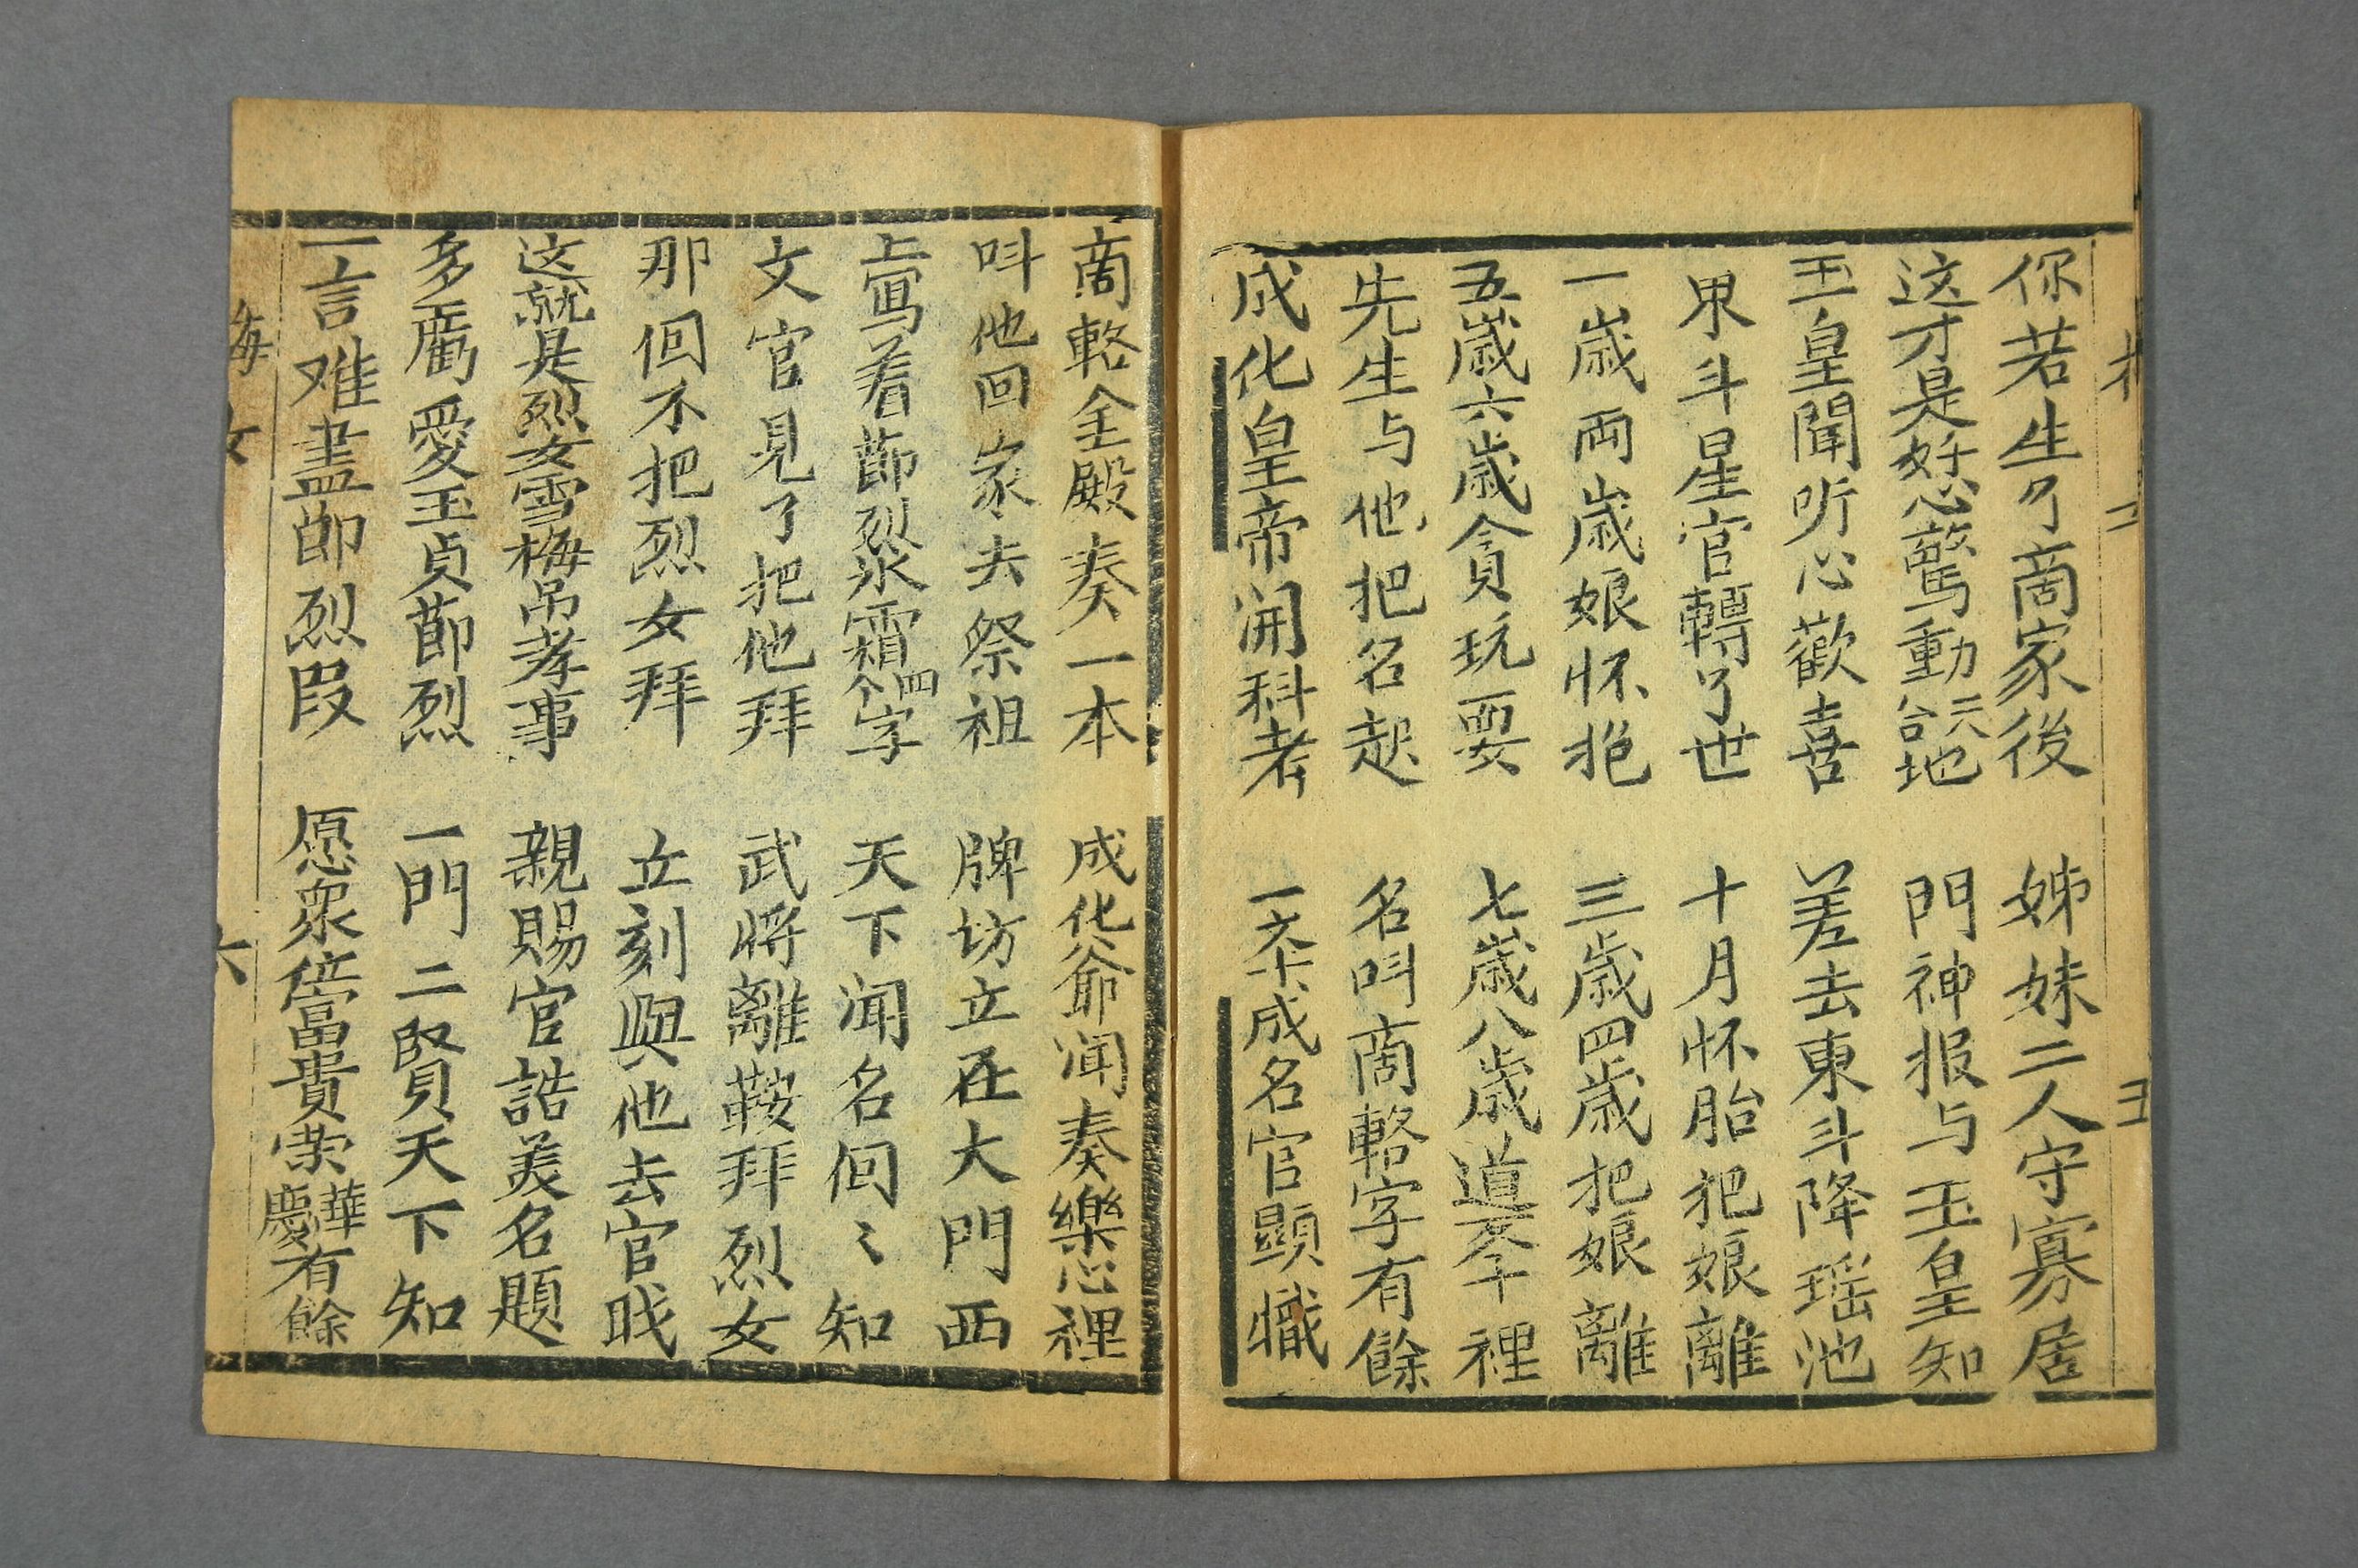 你若生了商家後　姊妹二人守寡居
这才是好心驚動天地　門神报与玉皇知
玉皇聞听心歡喜　差去東斗降瑶池
斗星官轉了世　十月怀胎把娘離
一歲両歲娘怀抱　三歲四歲把娘離
五歲六歲貪玩耍　七歲八歲道李裡
先生与他把名起　名叫商輅字有餘
成化皇帝開科考　一来成名官顕職
商輅全殿奏一本　成化爺闻奏樂心裡
叫他回家去祭祖　牌坊立在大門西
上寫着莭烈氷霜四个字　天下闻名個〻知
文官見了把他拜　武将離鞍拜烈女
那個不把烈女拜　立刻與他去官戝
这就是烈女雪梅吊孝事　親賜官誥美名題
多虧愛玉貞莭烈　一門二賢天下知
一言难盡莭烈叚　愿衆信富貴荣華慶有餘
梅
女
六